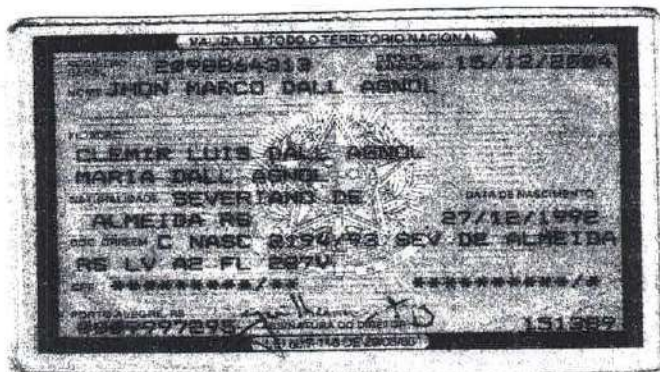 VALIDA EM TODO O TERRITÓRIO NACIONAL
2098864313 15/12/2004
NOME JHON MARCO DALL AGNOL
FILIAÇÃO
CLEMIR LUIS DALL AGNOL
MARIA DALL AGNOL
NATURALIDADE SEVERIANO DE DATA DE NASCIMENTO
ALMEIDA RS 27/12/1992
DOC ORIGEM C NASC 0194/93 SEV DE ALMEIDA
RS LV A2 FL 207V
CPF *********/** *********/*
PORTO ALEGRE, RS
0009997295 ASSINATURA DO DIRETOR 151389
LEI Nº 7.116 DE 29/08/83